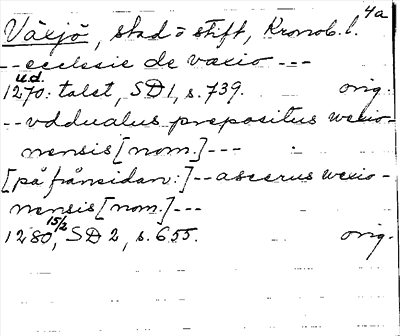 4a
Växjö, stad o stift, Kronob. l.
-- ecclesie de vaxio ---
u.d.
1270: talet, SD 1, s. 739. orig.
-- vddualus prepositus wexio-
nensis [nom.] ---
[på frånsidan:] -- ascerus wexio-
nensis [nom.] ---
1280 15/2, SD 2, s. 655. orig.